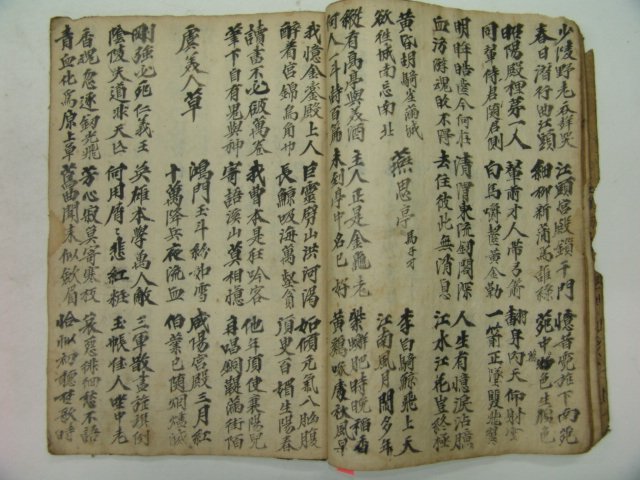 少陵野老吞聲哭 江頭宮殿鎖千門 憶昔霓旌下南苑
春日潛行曲江頭 細柳新蒲爲誰綠 苑中物色生顔色
昭陽殿裡第一人 輦前才人帶弓箭 翻身向天仰射雲
同輦侍君隨君側 白馬嚼齧黃金勒 一箭正墜雙飛翼
明眸皓齒今何在 清渭東流劍閣深 人生有情淚沾臆
血汚遊魂歸不得 去住彼此無消息 江水江花豈終極
黃昏胡騎塵滿城 燕思亭 馬子才 李白騎鯨飛上天
欲往城南忘南北 江南風月閑多年
縱有高亭與美酒 主人定是金龜老 紫蟹肥時晚稻香
何人一斗詩百篇 未到亭中名已好 黃鷄啄處秋風早
我憶金鑾殿上人 巨靈劈山洪河渴 如傾元氣入胸腹
醉着宮錦烏角巾 長鯨吸海萬壑貧 須臾百媚生陽春
讀書不必破萬卷 我曹本是狂吟客 他年須使襄陽兒
筆下自有鬼與神 寄語溪山莫相憶 再唱銅鞮滿街陌
虞美人草 鴻門玉斗紛如雪 咸陽宮殿三月紅
十萬降兵夜流血 伯業已隨烟燼滅
剛強必死仁義王 英雄本學萬人敵 三軍散盡旌旗倒
陰陵失道非天亡 何用屑屑悲紅粧 玉帳佳人坐中老
香魂夜逐劒光飛 芳心寂寞寄寒枝 哀怨徘徊愁不語
青血化爲原上草 舊曲聞來似斂眉 恰如初聽楚歌時